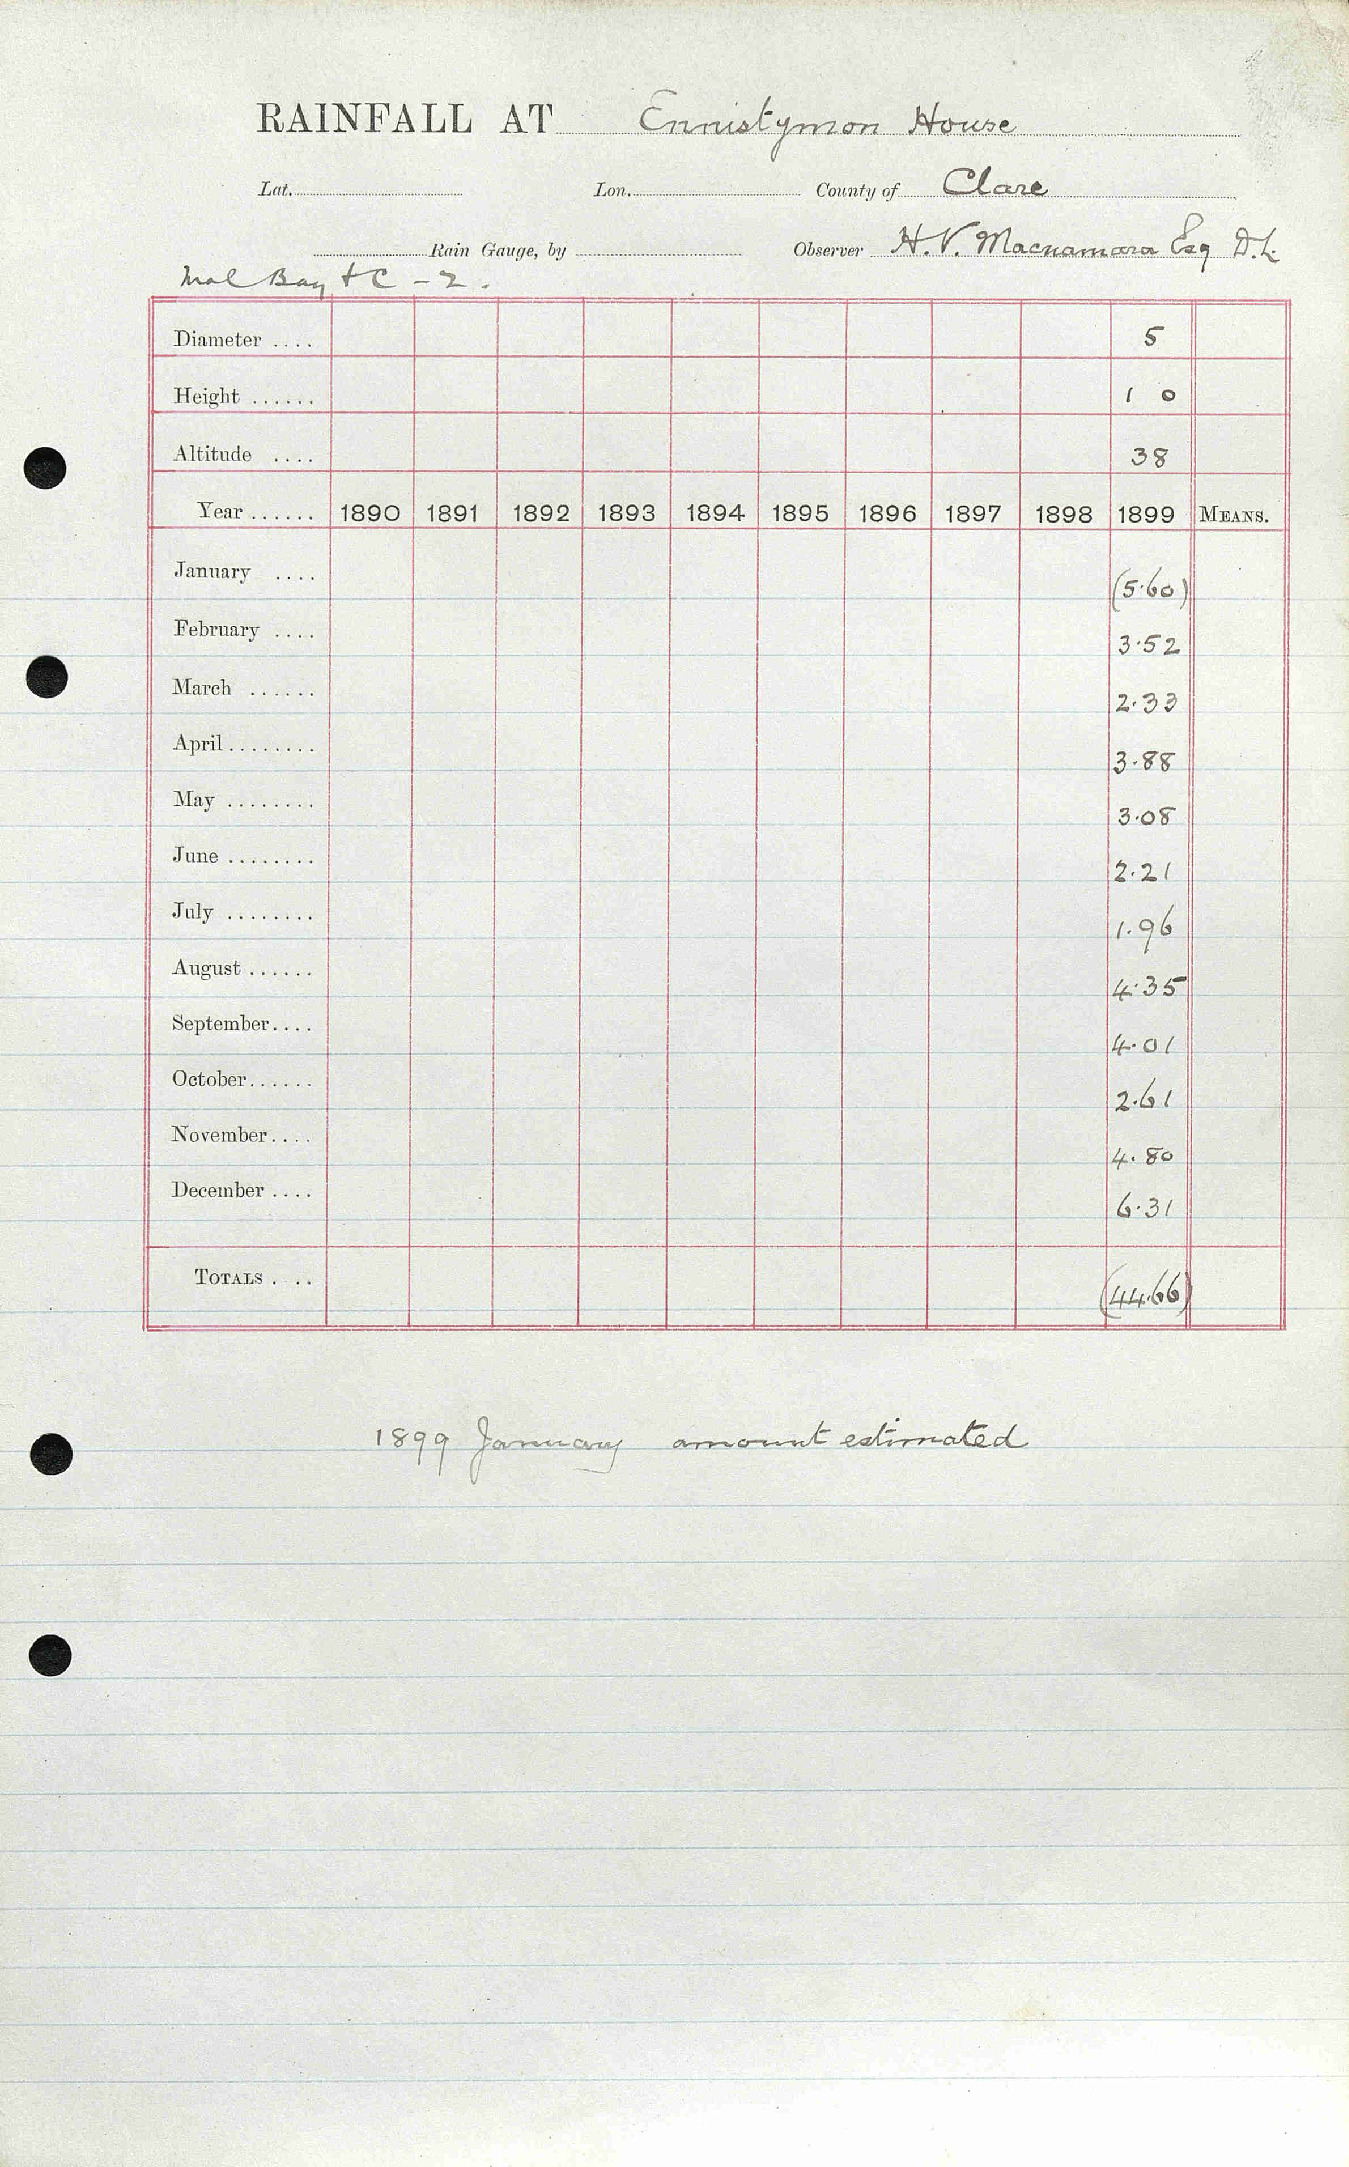 RAINFALL AT Ennistymon House
Lat. Lon. County of Clare
Rain Gauge, by Observer H.V. Macnamara Esq D.L.
Mal Bay + C - 2.
Diameter .... 5
Height ...... 1 0
Altitude .... 38
Year ...... 1890 1891 1892 1893 1894 1895 1896 1897 1898 1899 MEANS.
January .... (5.60)
February .... 3.52
March ...... 2.33
April ........ 3.88
May ........ 3.08
June ........ 2.21
July ........ 1.96
August ...... 4.35
September.... 4.01
October...... 2.61
November.... 4.80
December .... 6.31
TOTALS . .. (44.66)
1899 January amount estimated